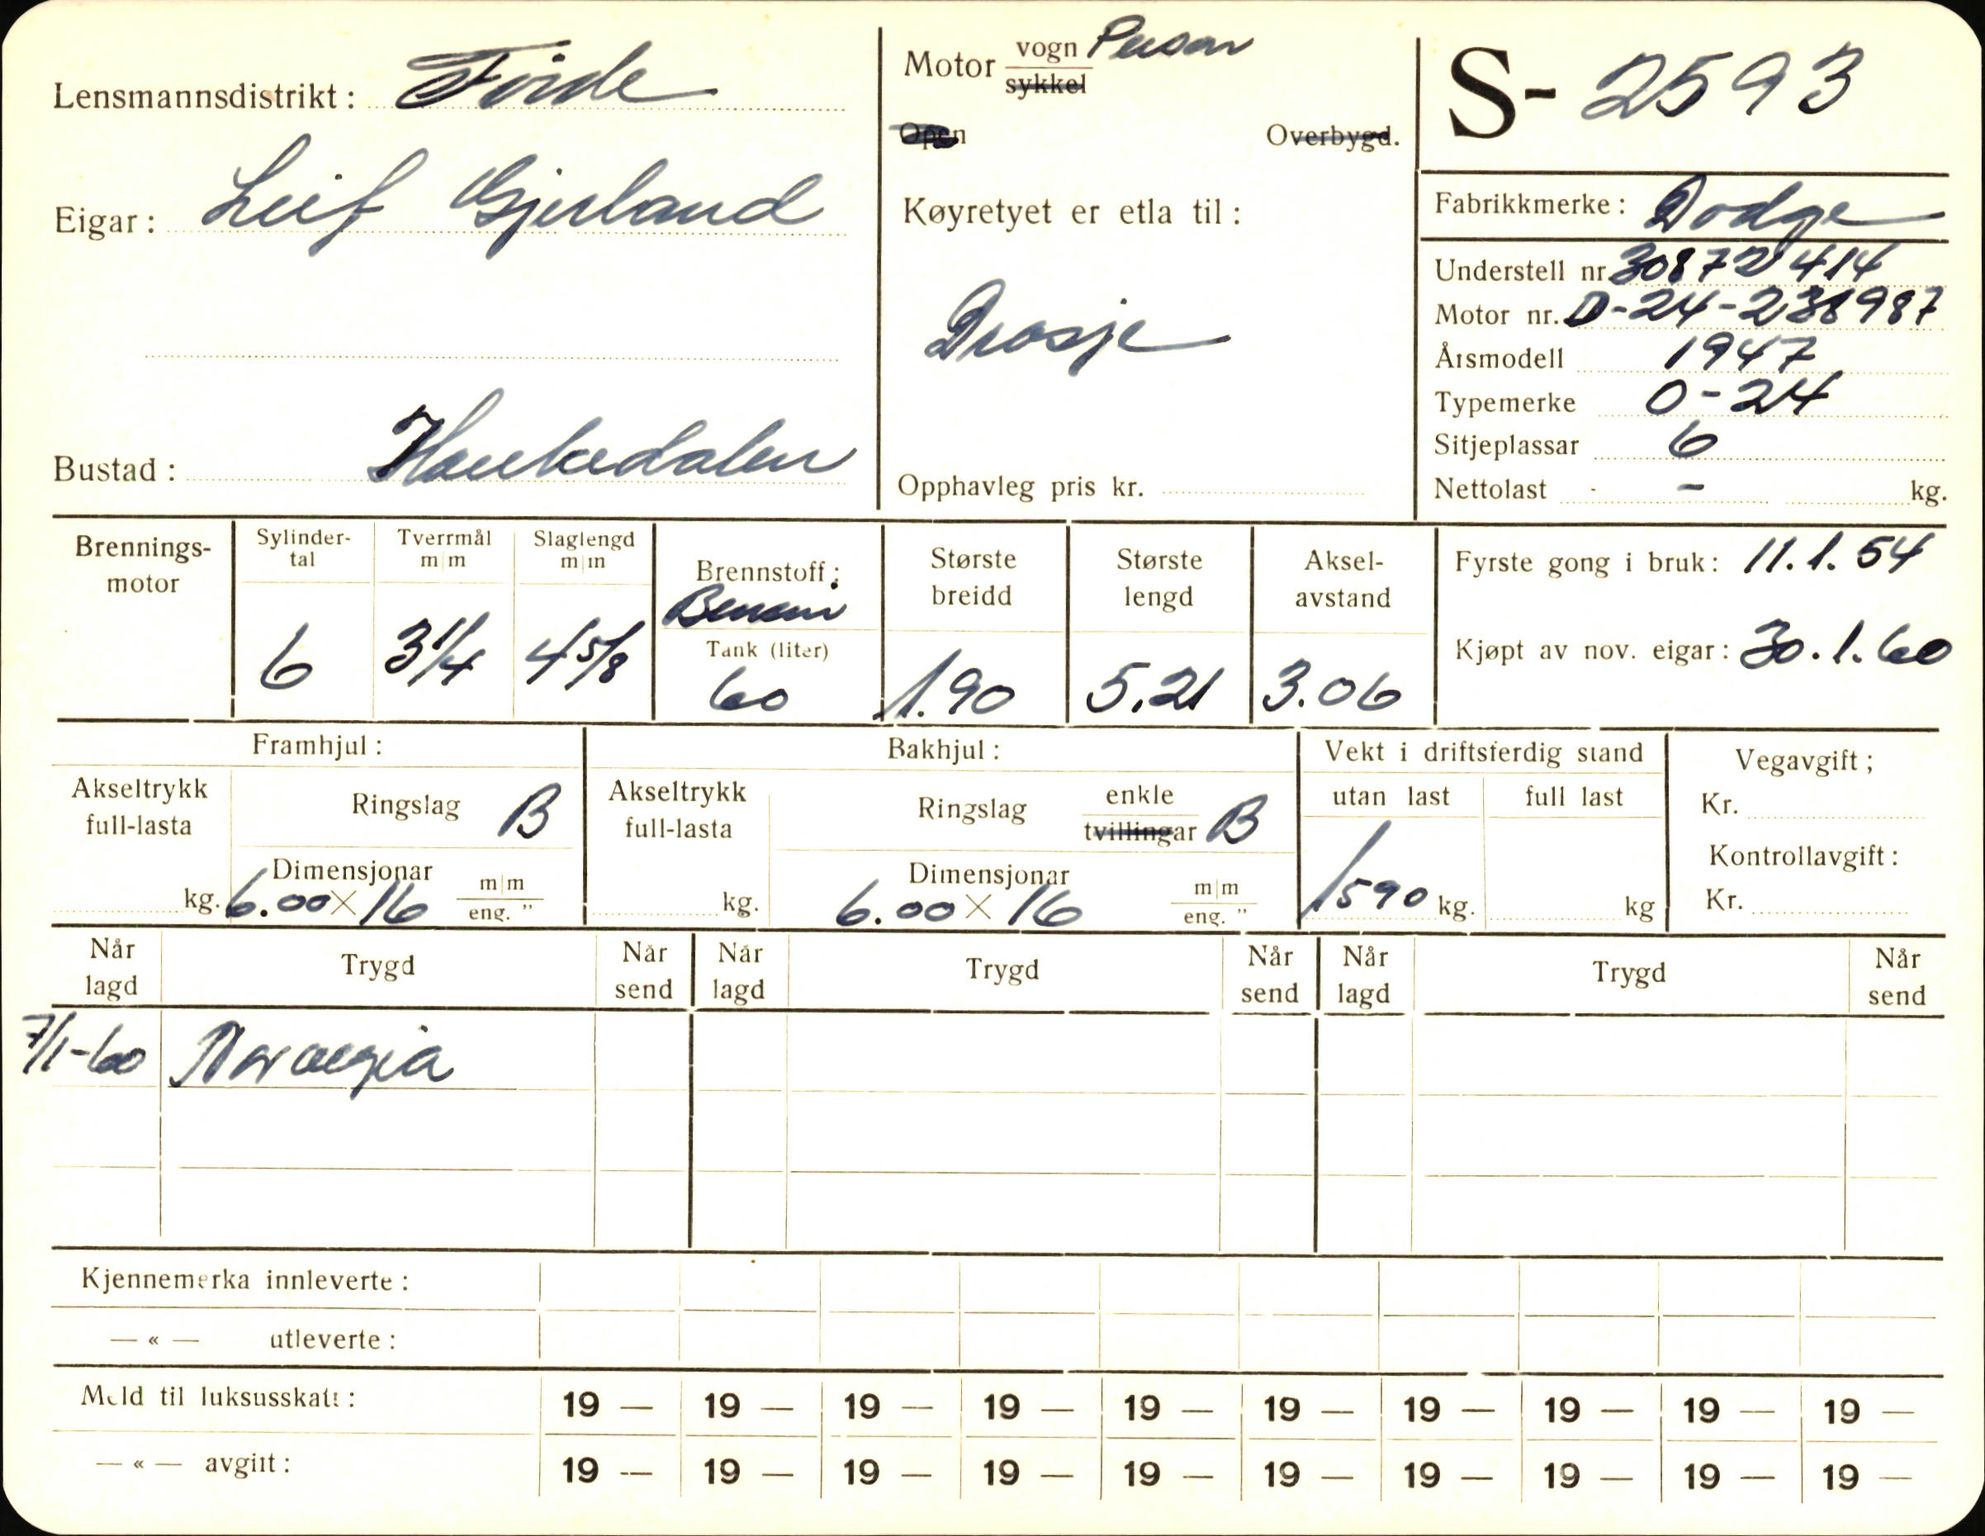 Lensmannsdistrikt: Førde
Eigar: Leif Gjerland
Bustad: Haukedalen
Motor vogn Person
sykkel
Open Overbygd.
Køyretyet er etla til:
Drosje
Opphavleg pris kr.
S- 2593
Fabrikkmerke: Dodge
Understell nr. 30872414
Motor nr. D-24-238987
Årsmodell 1947
Typemerke D-24
Sitjeplassar 6
Nettolast - kg.
Brennings-
motor
Sylinder-
tal
6
Tverrmål
m|m
3 1/4
Slaglengd
m|m
4 5/8
Brennstoff:
Bensin
Tank (liter)
60
Største
breidd
1.90
Største
lengd
5.21
Aksel-
avstand
3.06
Fyrste gong i bruk: 11.1.54
Kjøpt av nov. eigar: 30.1.60
Framhjul:
Akseltrykk
full-lasta
kg.
Ringslag B
Dimensjonar
6.00 × 16 m|m
eng. "
Bakhjul:
Akseltrykk
full-lasta
kg.
Ringslag enkle
tvillingar B
Dimensjonar
6.00 × 16 m|m
eng. "
Vekt i driftsferdig stand
utan last full last
1590 kg. kg
Vegavgift;
Kr.
Kontrollavgift:
Kr.
Når
lagd Trygd Når
send Når
lagd Trygd Når
send Når
lagd Trygd Når
send
7/1-60 Norvegia
Kjennemerka innleverte:
— « — utleverte:
Meld til luksusskatt: 19 — 19 — 19 — 19 — 19 — 19 — 19 — 19 — 19 — 19 —
— « — avgift: 19 — 19 — 19 — 19 — 19 — 19 — 19 — 19 — 19 — 19 —